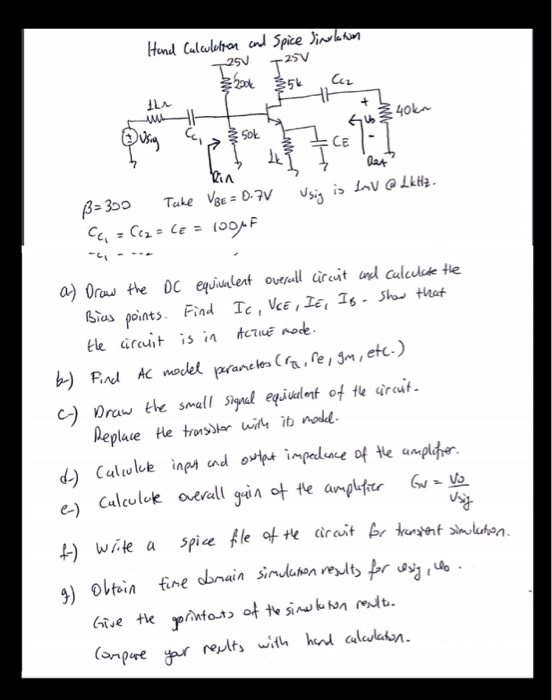 Hand Calculation and Spice Simulation
25V 25V
200k 5k CC2
1kΩ 40kΩ
+
Vsig CC1 50k Vo
1k CE -
Rin Rout
β=300 Take VBE = 0.7V Vsig is 1mV @ 1kHz.
CC1 = CC2 = CE = 100μF
a) Draw the DC equivalent overall circuit and calculate the
Bias points. Find IC, VCE, IE, IB. Show that
the circuit is in ACTIVE mode.
b-) Find AC model parameters (rπ, re, gm, etc.)
c-) Draw the small signal equivalent of the circuit.
Replace the transistor with its model.
d-) Calculate input and output impedance of the amplifier.
e-) Calculate overall gain of the amplifier Gv = Vo/Vsig
f-) Write a spice file of the circuit for transient simulation.
g-) Obtain time domain simulation results for vsig, vo.
Give the printouts of the simulation results.
Compare your results with hand calculation.